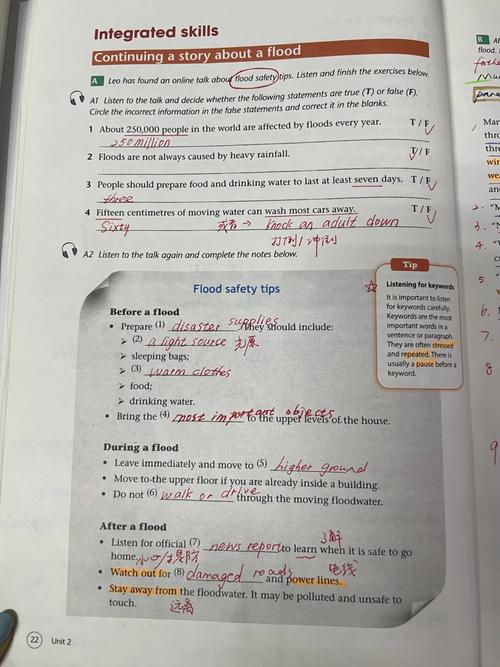 Integrated skills
Continuing a story about a flood
A Leo has found an online talk about flood safety tips. Listen and finish the exercises below.
A1 Listen to the talk and decide whether the following statements are true (T) or false (F).
Circle the incorrect information in the false statements and correct it in the blanks.
1 About 250,000 people in the world are affected by floods every year. T / F
250 million
2 Floods are not always caused by heavy rainfall. T / F
3 People should prepare food and drinking water to last at least seven days. T / F
three
4 Fifteen centimetres of moving water can wash most cars away. T / F
Sixty 或者→ knock an adult down
打倒/冲倒
A2 Listen to the talk again and complete the notes below.
Flood safety tips
Before a flood
• Prepare (1) disaster supplies They should include:
(2) a light source 光源
sleeping bags;
(3) warm clothes
food;
drinking water.
• Bring the (4) most important objects to the upper levels of the house.
During a flood
• Leave immediately and move to (5) higher ground
• Move to the upper floor if you are already inside a building.
• Do not (6) walk or drive through the moving floodwater.
After a flood
了解
• Listen for official (7) news report to learn when it is safe to go
home. 小心/提防 电线
• Watch out for (8) damaged roads and power lines.
• Stay away from the floodwater. It may be polluted and unsafe to
touch. 远离
Tip
Listening for keywords
It is important to listen
for keywords carefully.
Keywords are the most
important words in a
sentence or paragraph.
They are often stressed
and repeated. There is
usually a pause before a
keyword.
22 Unit 2
B
flood.
Mar
thro
three
win
wea
and
2. "M
3. "N
4. "N
5.
6.
7.
8
9